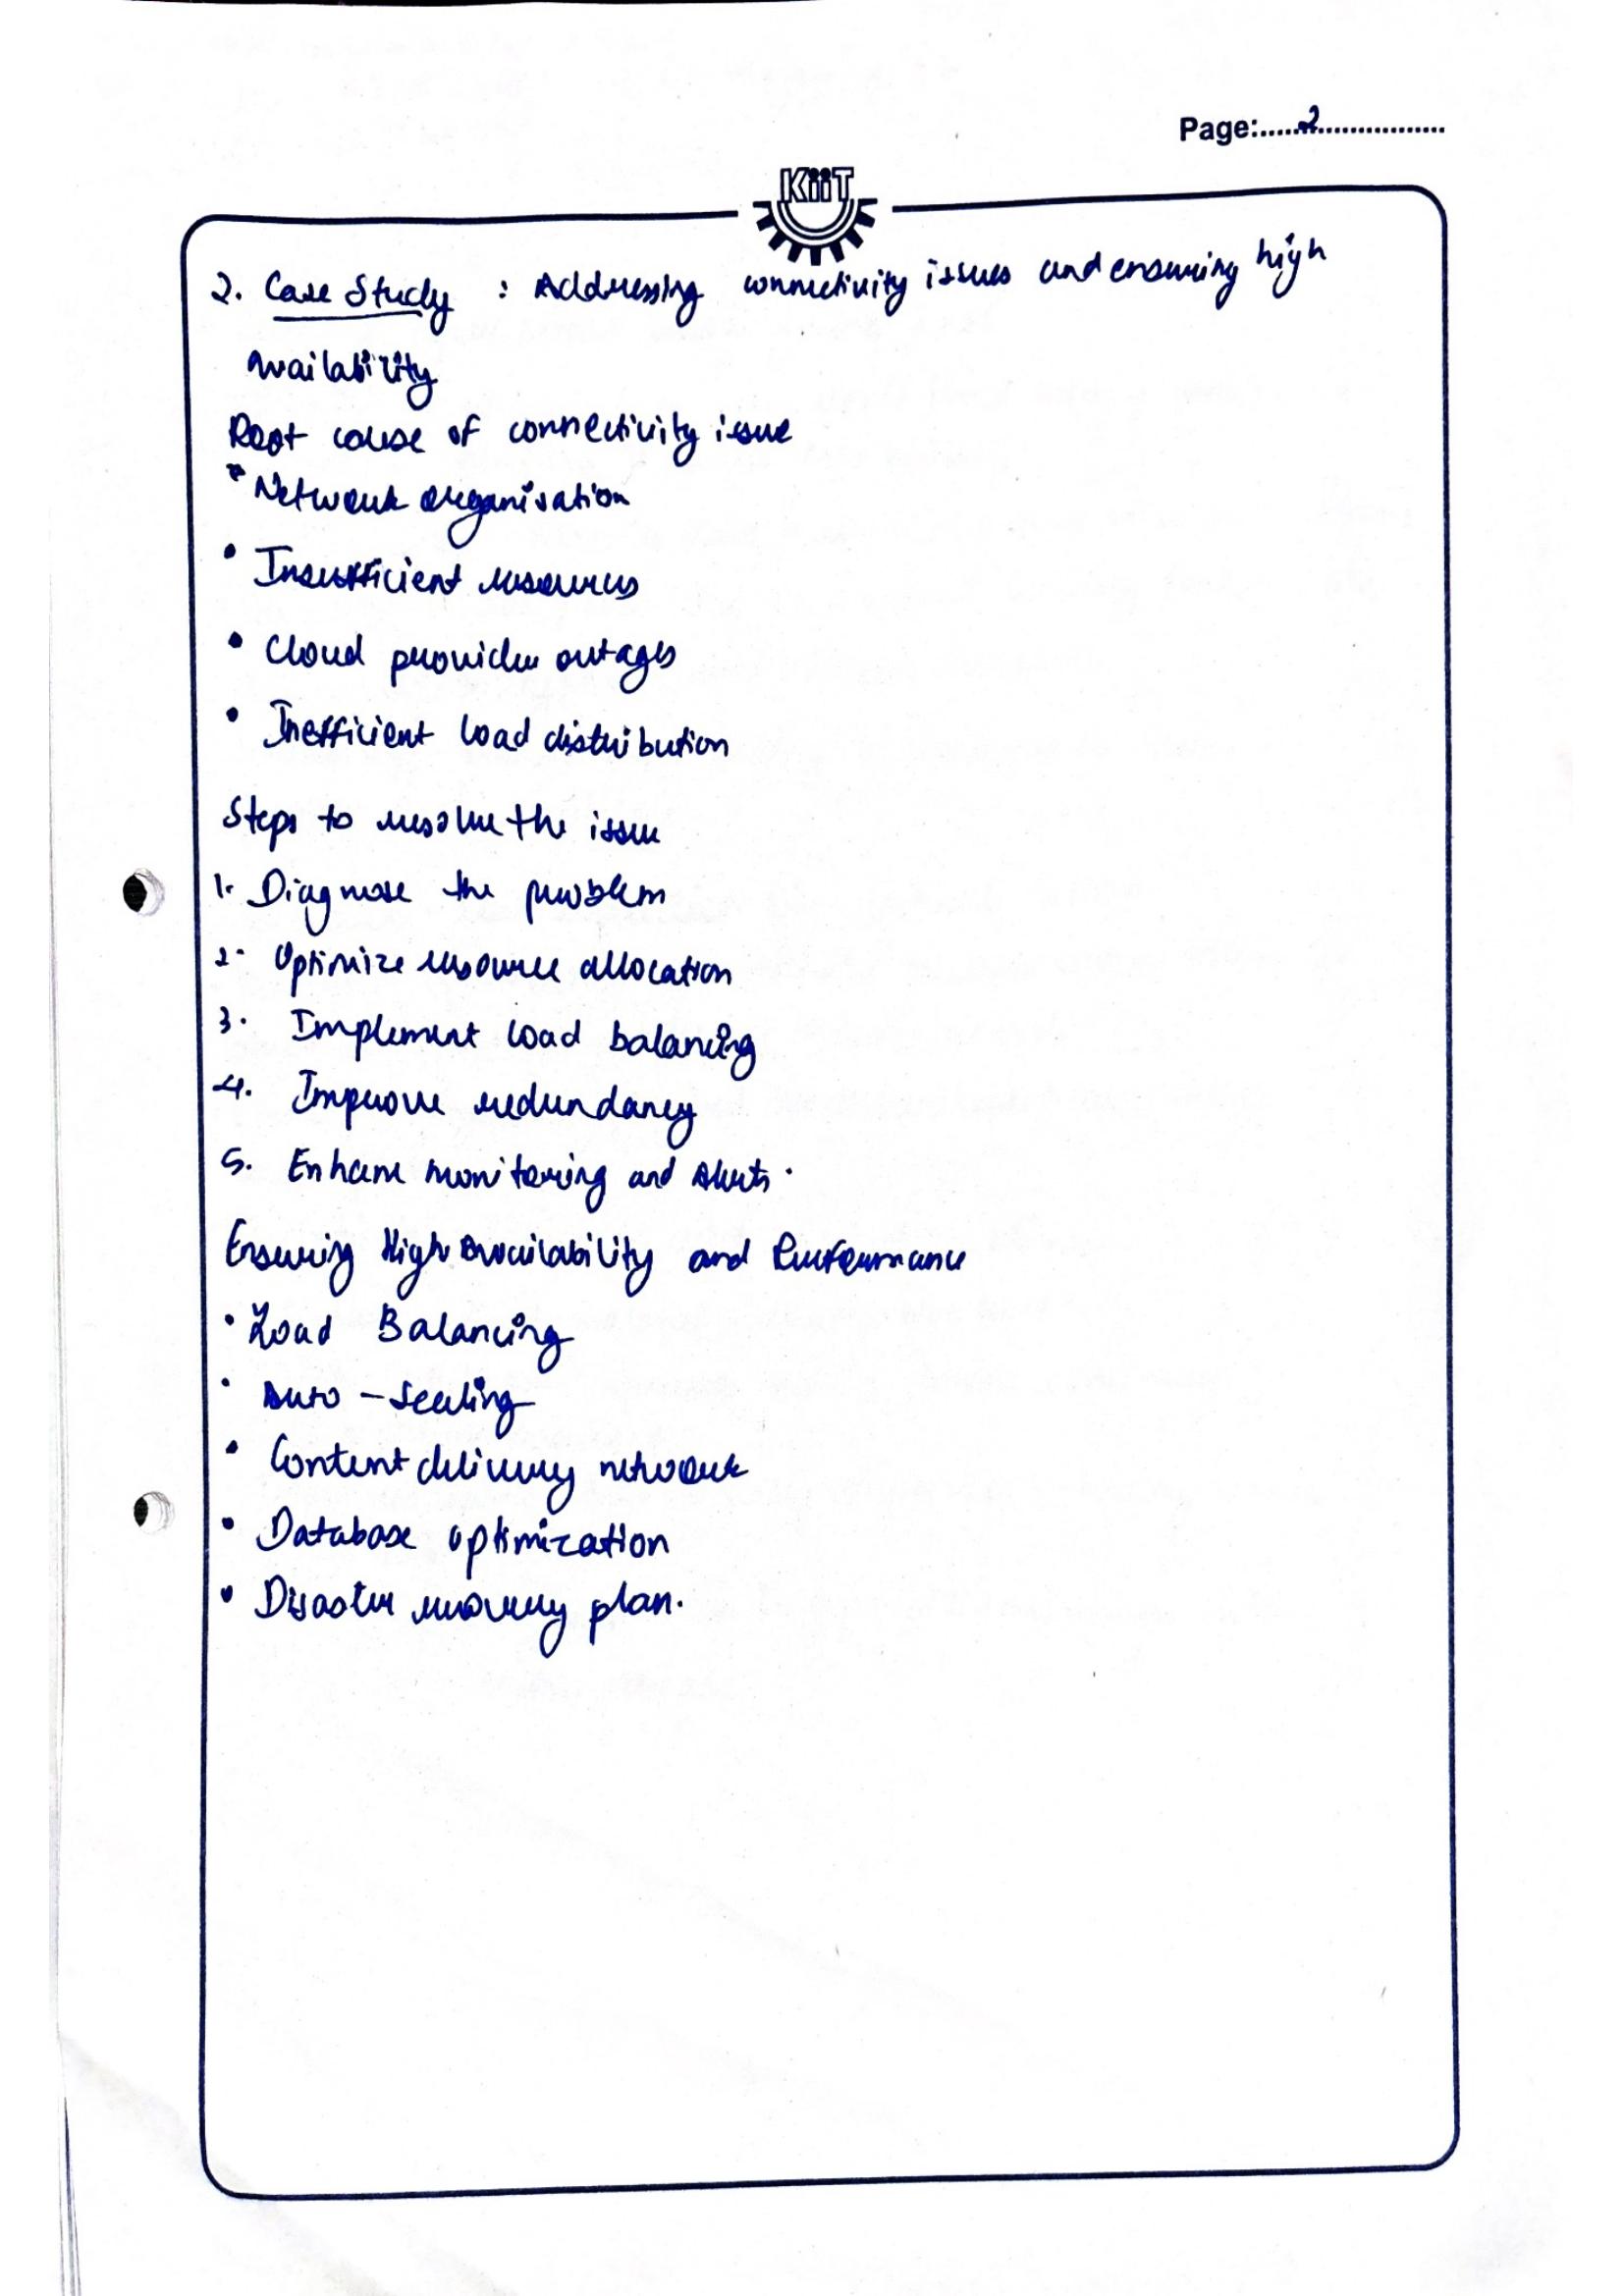 Page:......2......................
KiiT
2. Case Study : Addressing connectivity issues and ensuring high
Availability
Root cause of connectivity issue
• Network organisation
• Insufficient resources
• Cloud provider outages
• Inefficient load distribution
Steps to resolve the issue
1. Diagnose the problem
2. Optimize resource allocation
3. Implement load balancing
4. Improve redundancy
5. Enhance monitoring and Alerts.
Ensuring High Availability and Performance
• Load Balancing
• Auto - Scaling
• Content delivery network
• Database optimization
• Disaster recovery plan.